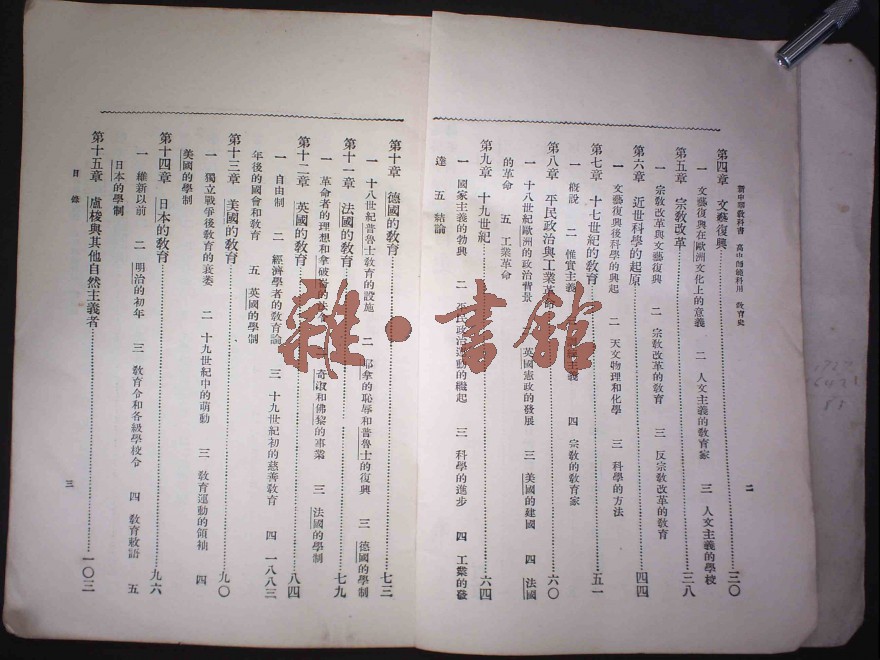 新中華教科書 高中師範科用 教育史
二
第四章 文藝復興 三〇
一 文藝復興在歐洲文化上的意義 二 人文主義的教育家 三 人文主義的學校
第五章 宗教改革 三八
一 宗教改革與文藝復興 二 宗教改革的教育 三 反宗教改革的教育
第六章 近世科學的起原 四四
一 文藝復興後科學的興起 二 天文物理和化學 三 科學的方法
第七章 十七世紀的教育 五一
一 概說 二 惟實主義 主義 四 宗教的教育家
第八章 平民政治與工業革命 六〇
一 十八世紀歐洲的政治背景 英國憲政的發展 三 美國的建國 四 法國
的革命 五 工業革命
第九章 十九世紀 六四
一 國家主義的勃興 二 平民政治運動的繼起 三 科學的進步 四 工業的發
達 五 結論
第十章 德國的教育 七三
一 十八世紀普魯士教育的設施 二 耶拿的恥辱和普魯士的復興 三 德國的學制
第十一章 法國的教育 七九
一 革命者的理想和拿破崙的法令 奇淑和佛黎的事業 三 法國的學制
第十二章 英國的教育 八四
一 自由制 二 經濟學者的教育論 三 十九世紀初的慈善教育 四 一八八三
年後的國會和教育 五 英國的學制
第十三章 美國的教育 九〇
一 獨立戰爭後教育的衰委 二 十九世紀中的萌動 三 教育運動的領袖 四
美國的學制
第十四章 日本的教育 九六
一 維新以前 二 明治的初年 三 教育令和各級學校令 四 教育敕語 五
日本的學制
第十五章 盧梭與其他自然主義者 一〇三
目錄
三
雜·書館